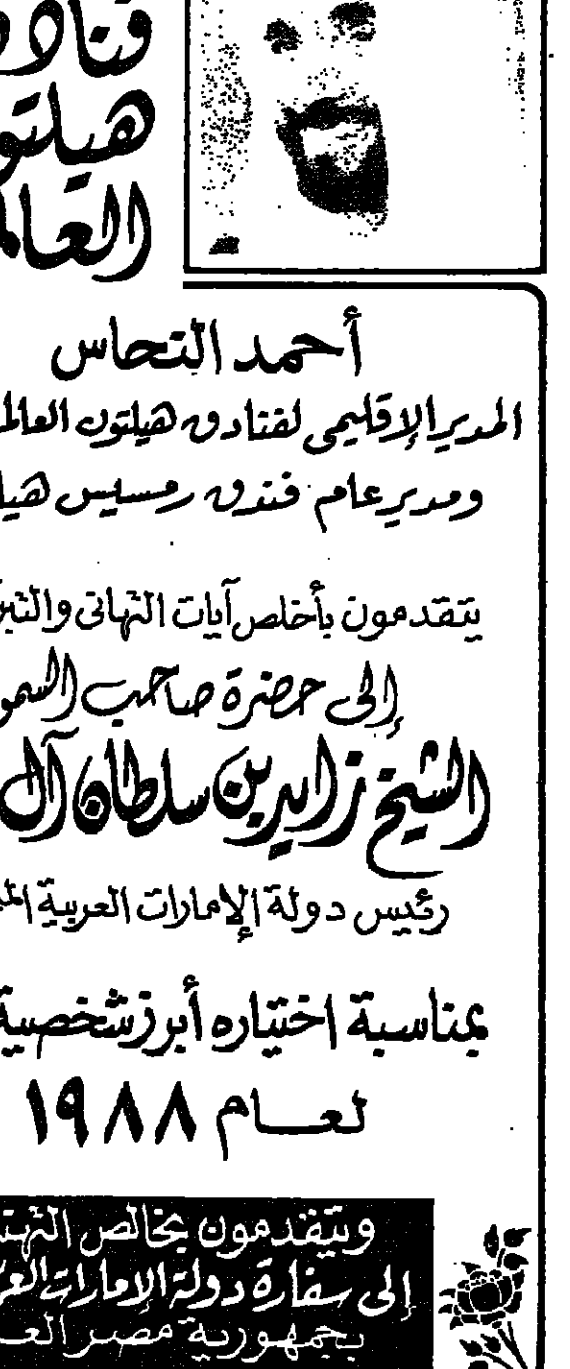 فناد
هيلتو
العالم
أحمد النحاس
المدير الإقليمى لفنادق هيلتون العالم
ومدير عام فندق رمسيس هيل
يتقدمون بأخلص آيات التهانى والتبر
إلى حضرة صاحب السمو
الشيخ زايد بن سلطان آل
رئيس دولة الإمارات العربية المت
بمناسبة اختياره أبرز شخصية
لعـــام ١٩٨٨
ويتقدمون بخالص التهن
إلى سفارة دولة الإمارات العر
بجمهورية مصر العـ